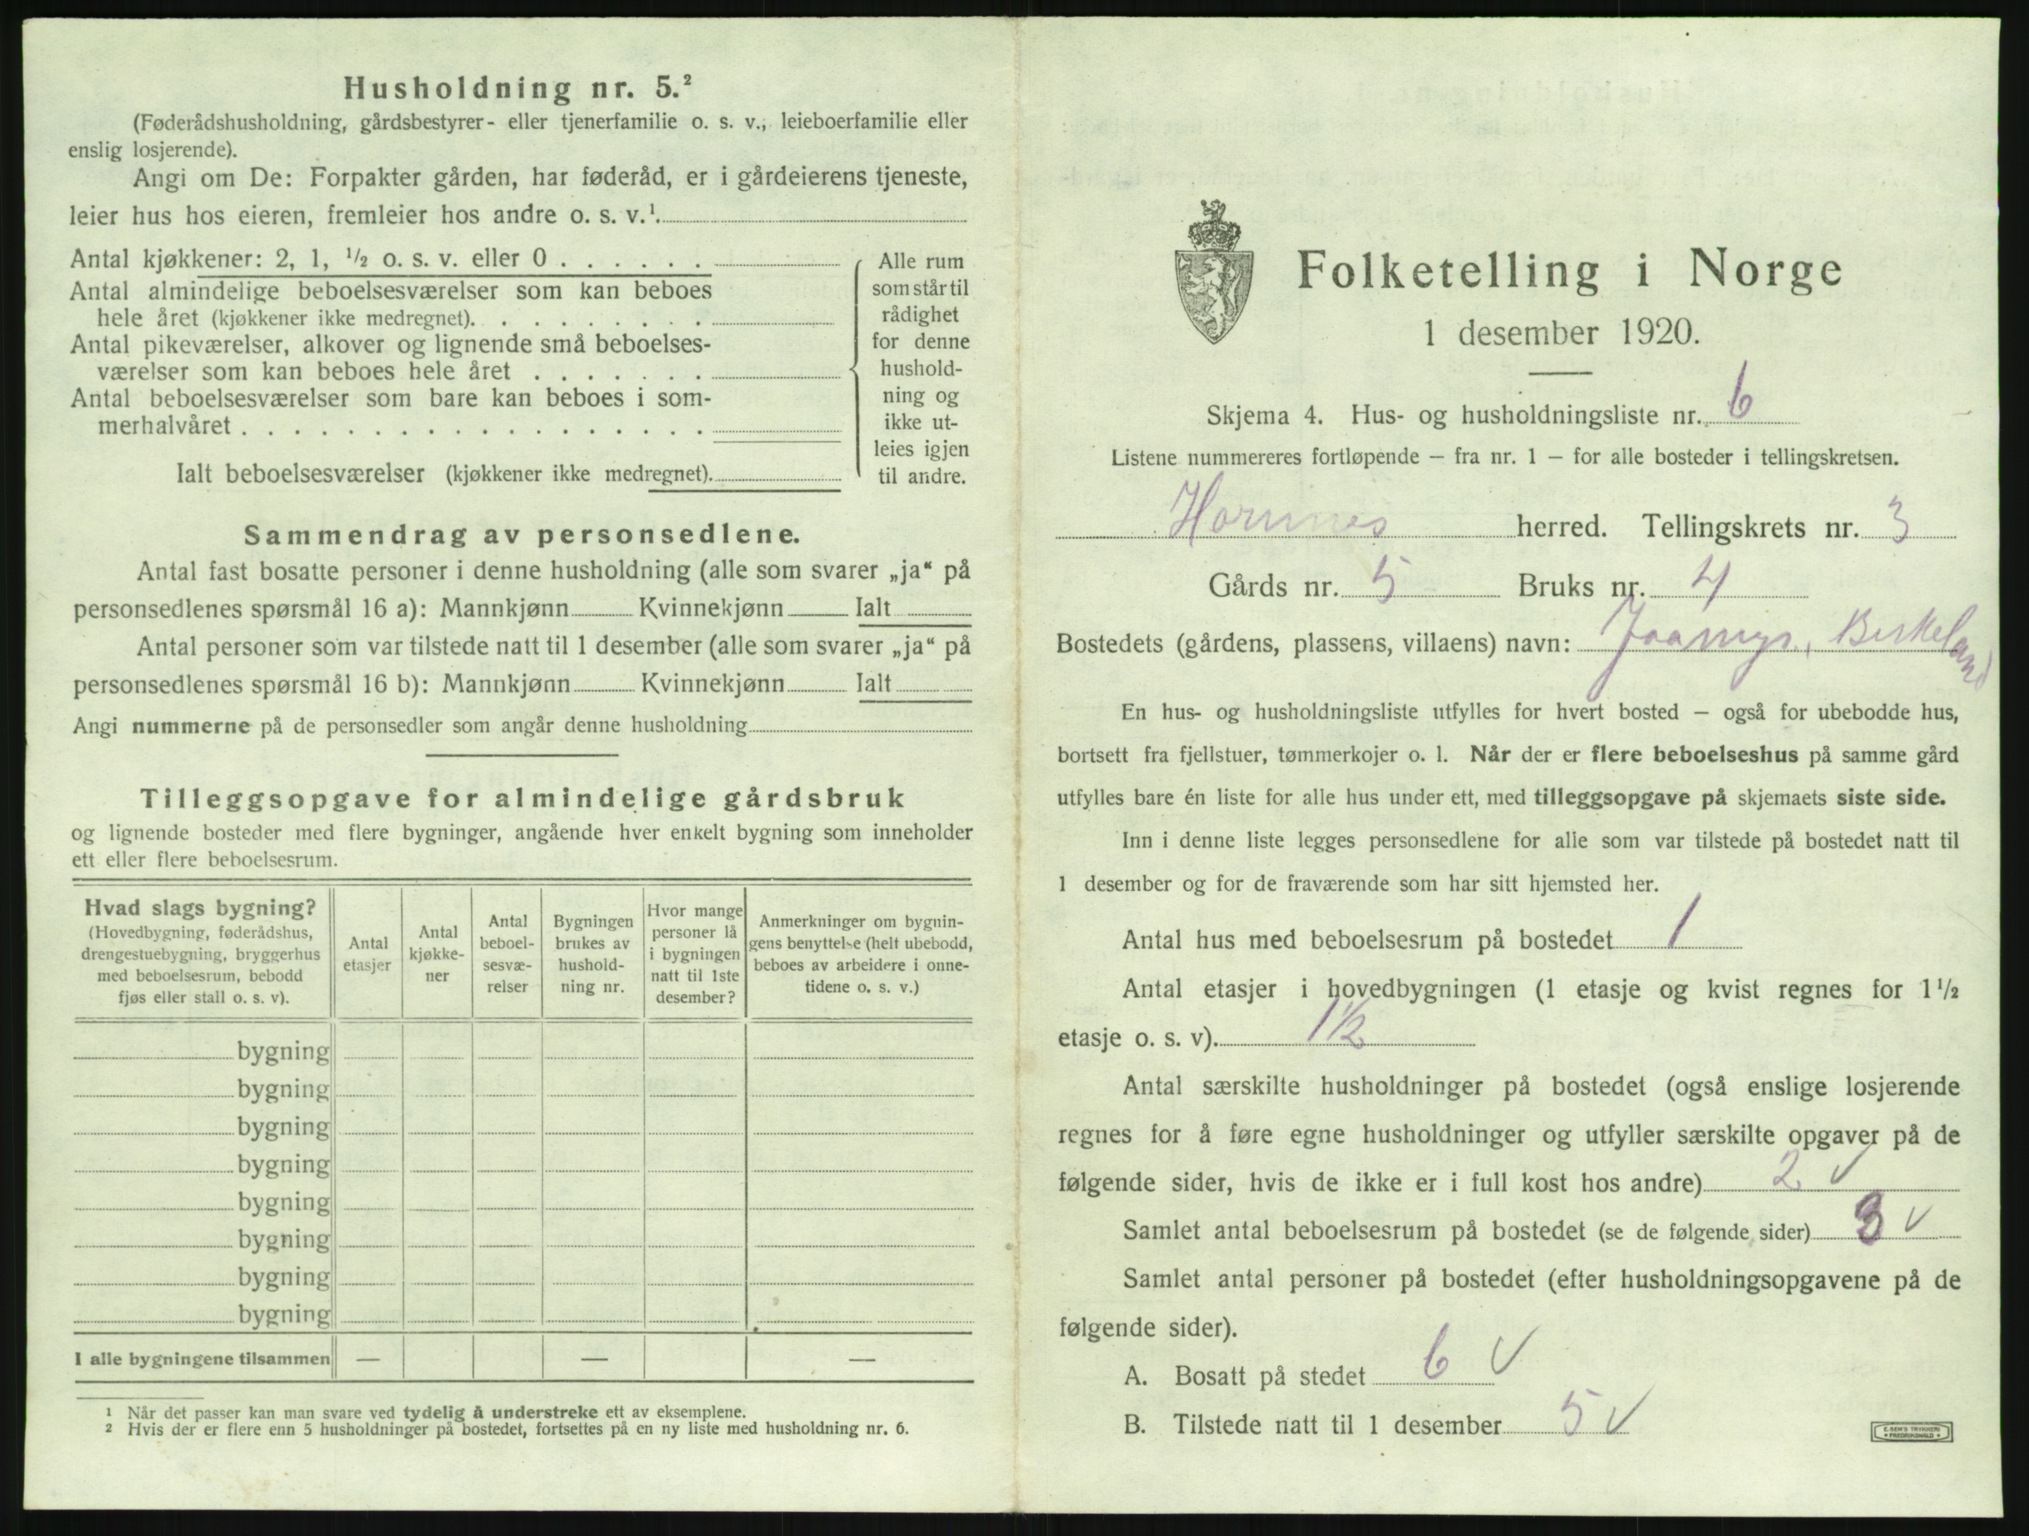 Husholdning nr. 5.²
(Føderådshusholdning, gårdsbestyrer- eller tjenerfamilie o. s. v., leieboerfamilie eller
enslig losjerende).
Angi om De: Forpakter gården, har føderåd, er i gårdeierens tjeneste,
leier hus hos eieren, fremleier hos andre o. s. v.¹
Antal kjøkkener: 2, 1, ½ o. s. v. eller 0 . . . . . .
Antal almindelige beboelsesværelser som kan beboes
hele året (kjøkkener ikke medregnet). . . . . . . . .
Antal pikeværelser, alkover og lignende små beboelses-
værelser som kan beboes hele året . . . . . . .
Antal beboelsesværelser som bare kan beboes i som-
merhalvåret . . . . . . . . . . . . . . . . . .
Ialt beboelsesværelser (kjøkkener ikke medregnet).
Alle rum
som står til
rådighet
for denne
hushold-
ning og
ikke ut-
leies igjen
til andre.
Sammendrag av personsedlene.
Antal fast bosatte personer i denne husholdning (alle som svarer „ja“ på
personsedlenes spørsmål 16 a): Mannkjønn Kvinnekjønn Ialt
Antal personer som var tilstede natt til 1 desember (alle som svarer „ja“ på
personsedlenes spørsmål 16 b): Mannkjønn Kvinnekjønn Ialt
Angi nummerne på de personsedler som angår denne husholdning
Tilleggsopgave for almindelige gårdsbruk
og lignende bosteder med flere bygninger, angående hver enkelt bygning som inneholder
ett eller flere beboelsesrum.
Hvad slags bygning?
(Hovedbygning, føderådshus,
drengestuebygning, bryggerhus
med beboelsesrum, bebodd
fjøs eller stall o. s. v).
Antal
etasjer
Antal
kjøkke-
ner
Antal
beboel-
sesvæ-
relser
Bygningen
brukes av
hushold-
ning nr.
Hvor mange
personer lå
i bygningen
natt til 1ste
desember?
Anmerkninger om bygnin-
gens benyttelse (helt ubebodd,
beboes av arbeidere i onne-
tidene o. s. v.)
bygning
bygning
bygning
bygning
bygning
bygning
bygning
bygning
I alle bygningene tilsammen — — —
¹ Når det passer kan man svare ved tydelig å understreke ett av eksemplene.
² Hvis der er flere enn 5 husholdninger på bostedet, fortsettes på en ny liste med husholdning nr. 6.
Folketelling i Norge
1 desember 1920.
Skjema 4. Hus- og husholdningsliste nr. 6
Listene nummereres fortløpende — fra nr. 1 — for alle bosteder i tellingskretsen.
Hornnes herred. Tellingskrets nr. 3
Gårds nr. 5 Bruks nr. 4
Bostedets (gårdens, plassens, villaens) navn: Birkeland
En hus- og husholdningsliste utfylles for hvert bosted — også for ubebodde hus,
bortsett fra fjellstuer, tømmerkojer o. l. Når der er flere beboelseshus på samme gård
utfylles bare én liste for alle hus under ett, med tilleggsopgave på skjemaets siste side.
Inn i denne liste legges personsedlene for alle som var tilstede på bostedet natt til
1 desember og for de fraværende som har sitt hjemsted her.
Antal hus med beboelsesrum på bostedet 1
Antal etasjer i hovedbygningen (1 etasje og kvist regnes for 1½
etasje o. s. v). 1½
Antal særskilte husholdninger på bostedet (også enslige losjerende
regnes for å føre egne husholdninger og utfyller særskilte opgaver på de
følgende sider, hvis de ikke er i full kost hos andre) 2 ✓
Samlet antal beboelsesrum på bostedet (se de følgende sider) 3 ✓
Samlet antal personer på bostedet (efter husholdningsopgavene på de
følgende sider).
A. Bosatt på stedet 6 ✓
B. Tilstede natt til 1 desember 5 ✓
E. SEM'S TRYKKERI
FREDRIKSHALD